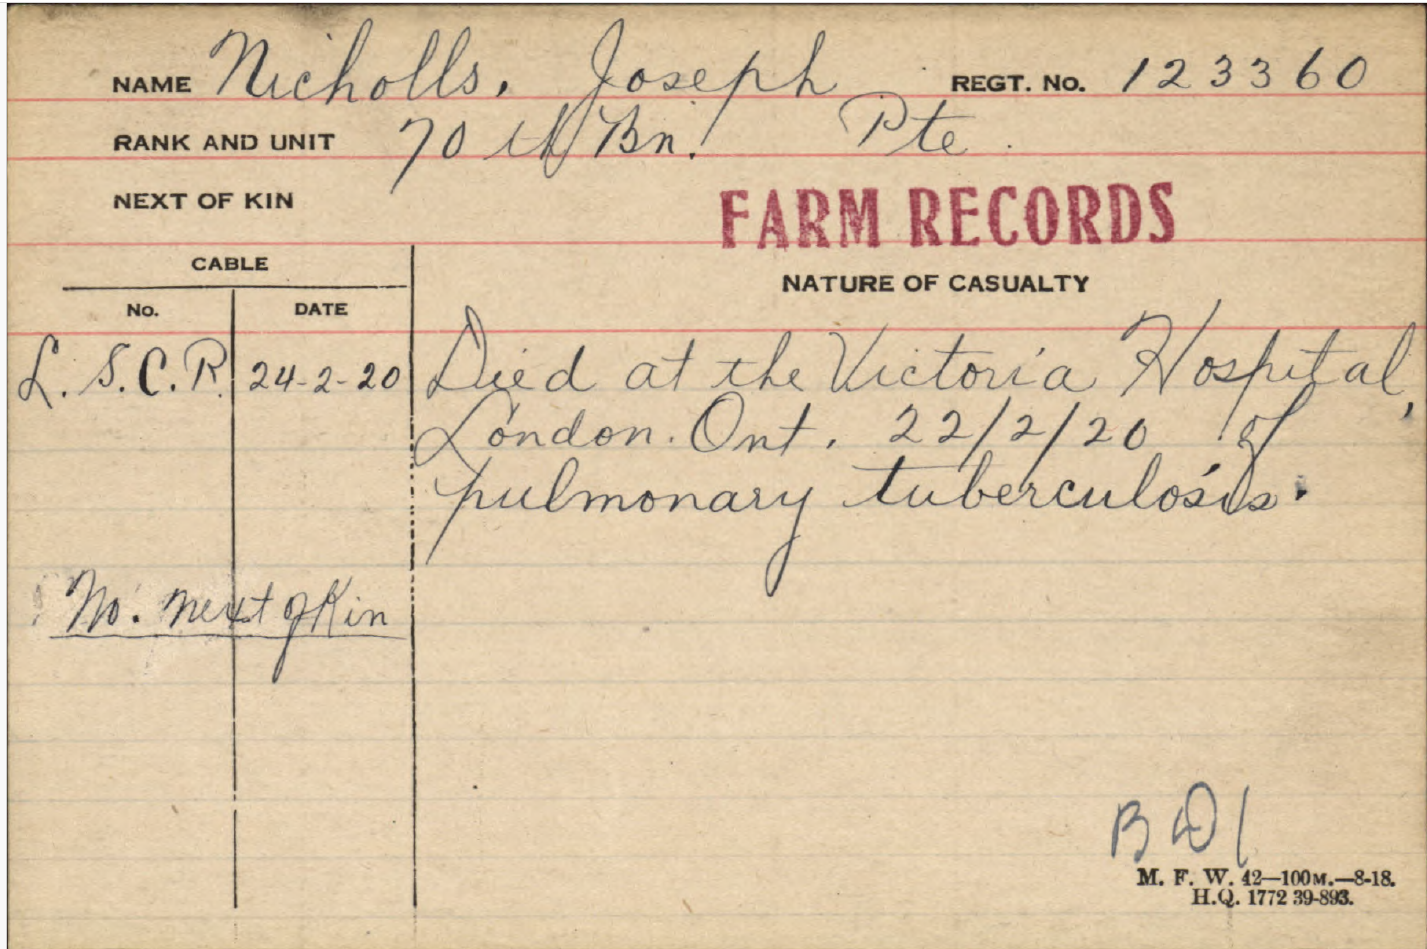 NAME Nicholls, Joseph REGT. No. 123360
RANK AND UNIT 70th Bn. Pte.
NEXT OF KIN
FARM RECORDS
CABLE
NATURE OF CASUALTY
No. DATE
L. S. C. R. 24-2-20 Died at the Victoria Hospital,
London. Ont. 22/2/20 of
pulmonary tuberculosis.
No. next of Kin
M. F. W. 42—100M.—8-18.
H.Q. 1772 39-893.